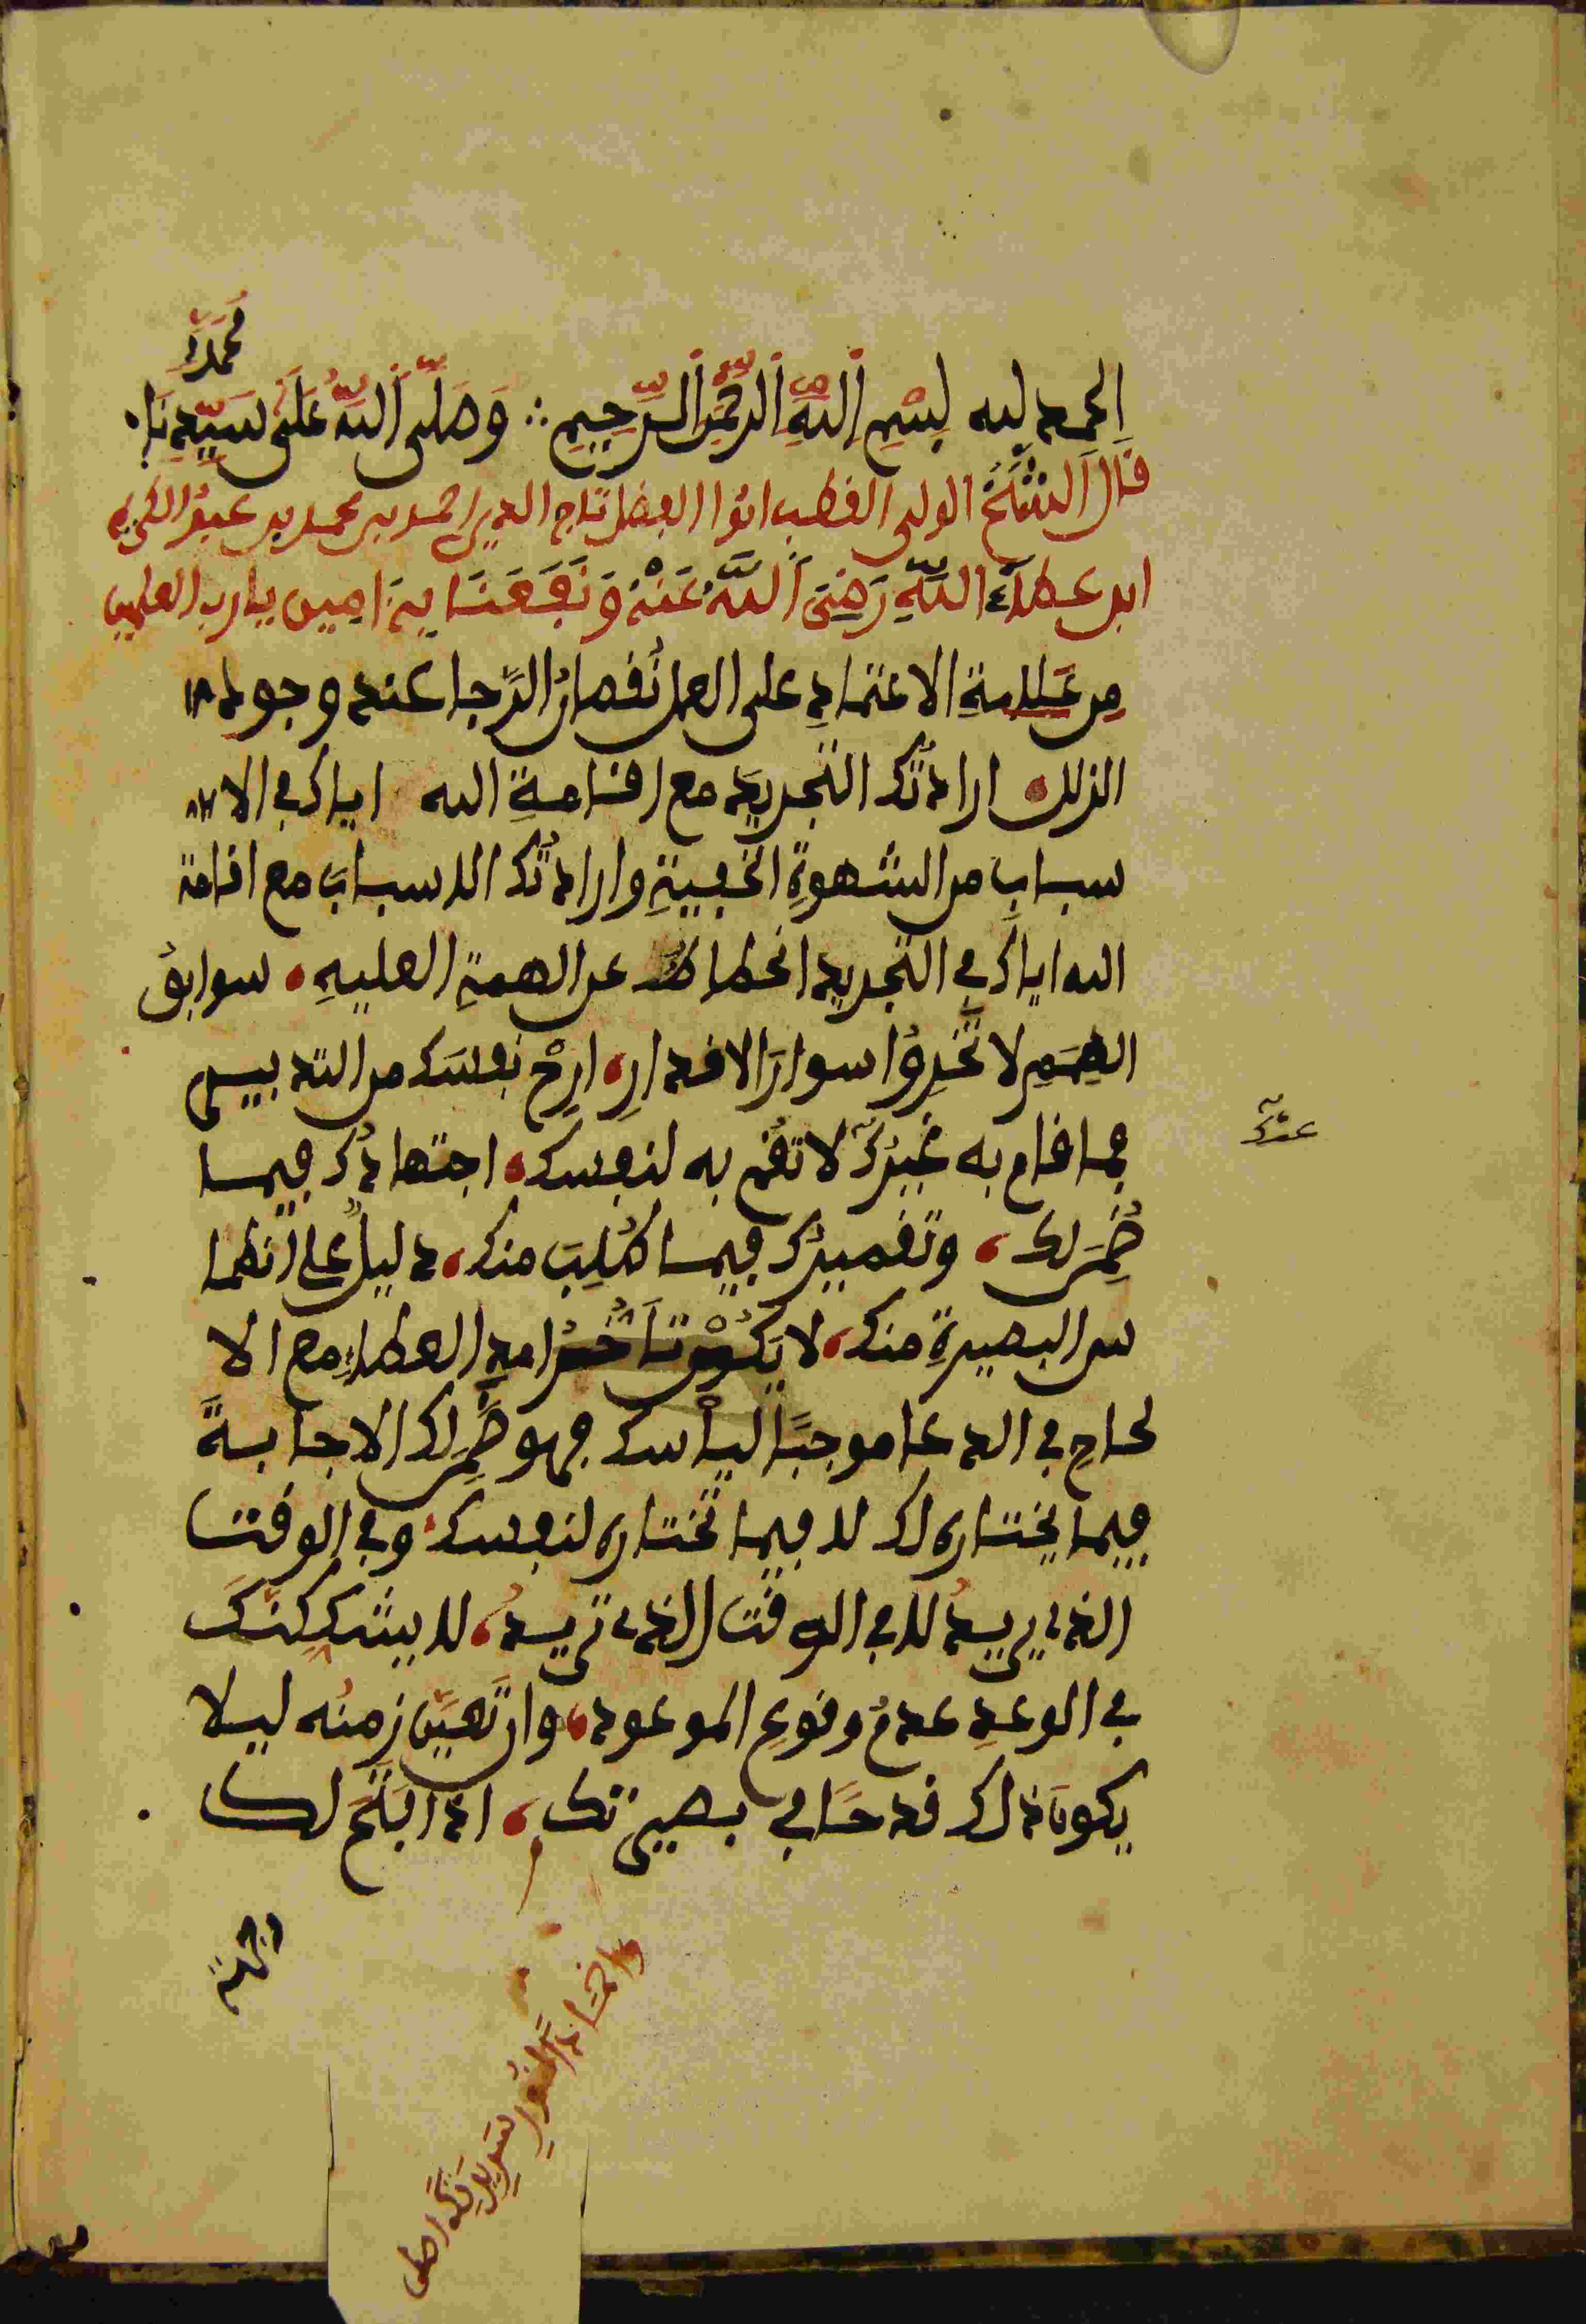 محمد
الحمد لله بِسْمِ اللَّهِ الرَّحْمٰنِ الرَّحِيمِ ؞ وَصَلَّى اللَّهُ عَلَى سَيِّدِنَا
قال الشَّيْخُ الولى القطب ابوا الفضل تاج الدين احمد بن محمد بن عبد الكريم
ابن عطاء اللَّهِ رَضِيَ اَللَّهُ عَنْهُ وَنَفَعَنَا بِهِ امين يا رب العلمين
مِن عَلامةِ الاعتمادِ على العمل نُقصانُ الرَّجا عند وجود
الزلل ارادتُك التجريدَ مع اقامةِ الله اياك في الا
سبابِ من الشهوةِ الخفيةِ وارادتُك الاسبابَ مع اقامة
الله اياك في التجريد انحطاطٌ عن الهمةِ العليهِ، سوابقُ
الهِمَمِ لا تَخْرِقُ اسوارَ الاقدارِ، ارِحْ نفسَك من التدبير
فما قام به غيرُك لا تقُم به لنفسك، اجتهادُك فيما
عنك
ضُمِنَ لك، وتقصيرُك فيما طُلِبَ منك، دليلٌ على انطما
س البصيرةِ منك، لا يَكُنْ تَأَخُّرُ امدِ العطاء مع الا
لحاحِ في الدعا موجبًا ليأسك فهو ضَمِنَ لك الاجابةَ
فيما يختاره لك لا فيما تختاره لنفسك، وفي الوقت
الذي يريدُ لا في الوقت الذي تريدُ، لا يشككنك
في الوعدِ عدمُ وقوعِ الموعود، وان تَعيَّن زمنُه ليلا
يكونَ ذلك قدحًا في بصيرتك، اذا فتح لك
وجهةً
واخمادًا لنُورِ سَرِيرَتِكَ